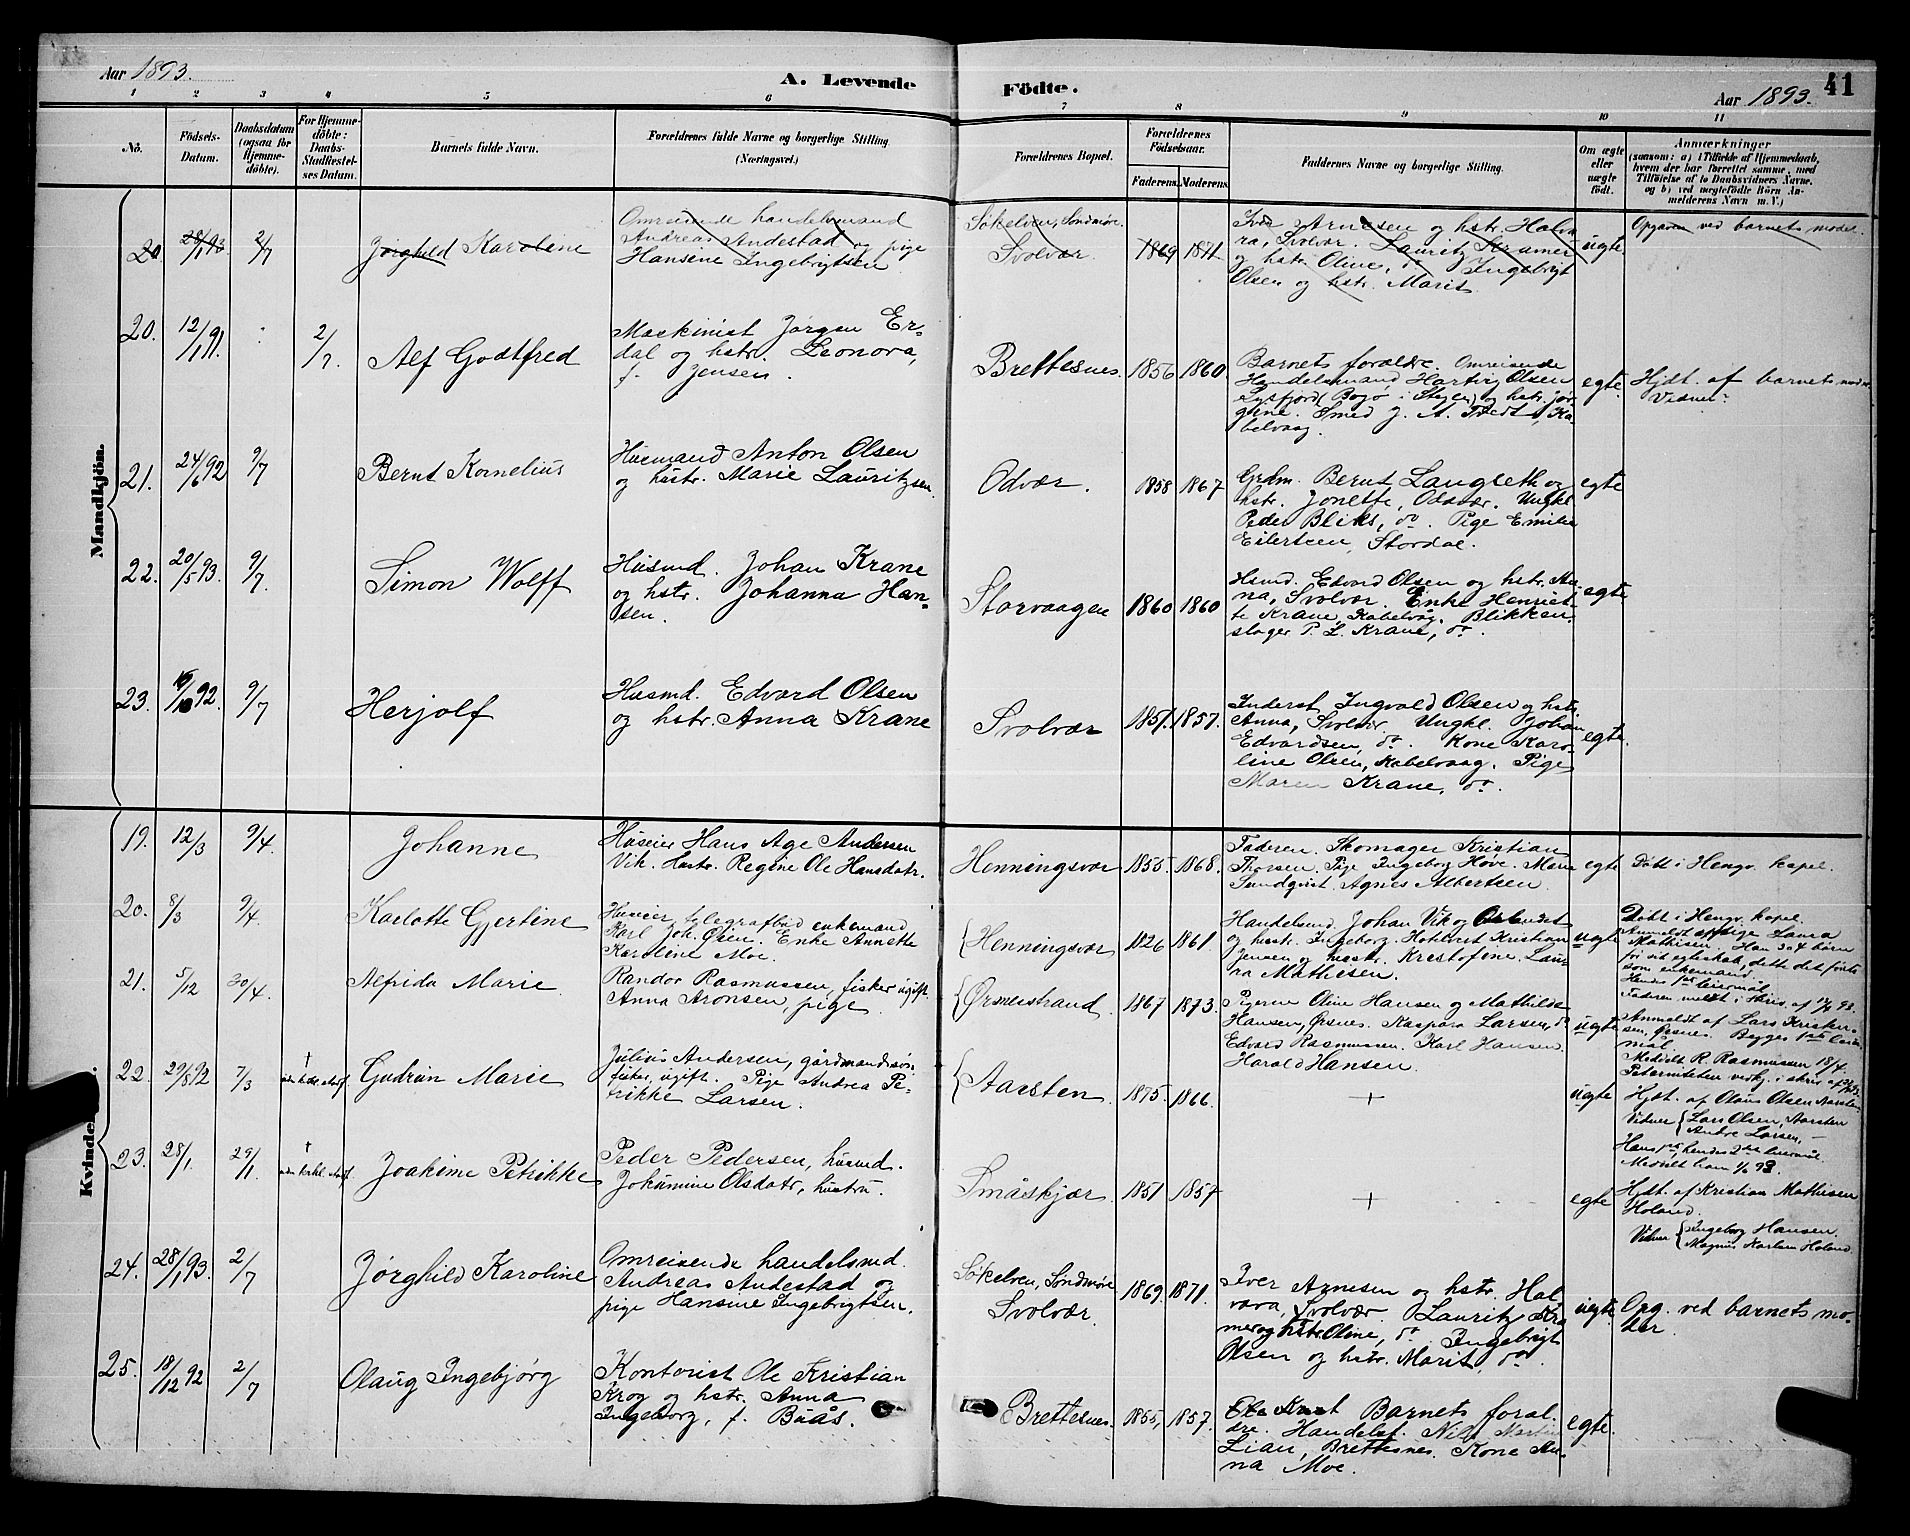 Aar 1893.
A. Levende
Födte.
Aar 1893.
41
1 2 3 4 5 6 7 8 9 10 11
No.
Födsels-
Datum.
Daabsdatum
(ogsaa for
Hjemme-
døbte).
For Hjemme-
døbte:
Daabs-
Stadfæstel-
ses Datum.
Barnets fulde Navn.
Forældrenes fulde Navne og borgerlige Stilling.
(Næringsvei.)
Forældrenes Bopæl.
Forældrenes
Födselsaar.
Faderens. Moderens.
Faddernes Navne og borgerlige Stilling.
Om ægte
eller
uægte
født.
Anmærkninger
(saasom: a) i Tilfælde af Hjemmedaab,
hvem der har forrettet samme, med
Tilföielse af to Daabsvidners Navne,
og b) ved uægtefödte Börn An-
melderens Navn m. V.)
Mandkjön.
20 28/1 93. 2/7 Jørghild Karoline
Omreisende handelsmand
Andreas Andestad og pige
Hansine Ingebrigtsen
Søkelven, Søndmøre
Svolvær
1869 1871
Iver Arnesen og hstr. Halva-
ra, Svolvær. Lauritz Kramer
og hstr. Oline, do Ingebrigt
Olsen og hstr. Marit
uegte
Opgaven ved barnets moder.
20. 12/1 91. 2/7. Alf Godtfred
Maskinist Jørgen Er-
dal og hstr. Leonora,
f. Jensen.
Brettesnes. 1856 1860.
Barnets forældre. Omreisende
Handelsmand Hartvig Olsen
Lysfjord (Bogø i Stegen) og hstr. Jør-
gine. Smed J. A. Tvedt, Ka-
belvaag.
egte.
Hjdt. af barnets moder
Vidner:
21. 24/6 92 9/7 Bernt Kornelius
Husmand Anton Olsen
og hustr. Marie Lauritzsen.
Odvær. 1858 1867
Grdm. Bernt Langleth og
hstr. Jonette, Odvær. Ungkl.
Peder Bliks, do. Pige Emilie
Eilertsen, Stordal.
egte
22. 20/5 93. 9/7. Simon Wolff
Husmd. Johan Krane
og hstr. Johanna Han-
sen.
Storvaagen 1860 1860
Hsmd. Edvard Olsen og hstr. An-
na, Svolvær. Enke Henriet-
te Krane, Kabelvåg. Blikken-
slager P. L. Krane, do.
egte
23. 92. 9/7 Herjolf
Husmd. Edvard Olsen
og hstr. Anna Krane
Svolvær 1851. 1857.
Inderst Ingvald Olsen og hstr.
Anna, Svolvær. Ungkl. Johan
Edvardsen, do. Kone Karo-
line Olsen, Kabelvaag. Pige
Maren Krane, do.
egte.
Kvindekjön.
19. 12/3 9/4. Johanne
Huseier Hans Age Andersen
Vik. Hustr. Regine Ole Hansdatr.
Henningsvær 1855. 1868.
Faderen. Thomager Kristian
Thorsen. Pige Ingeborg Hove. Marie
Sundqvist. Agnes Albertsen.
egte
Døbt i Hengv. kapel.
20. 8/3 9/4. Karlotte Gjertine
Huseier, telegrafbud enkemand
Karl Joh. Olsen. Enke Annette
Karoline Moe.
Henningsvær 1826 1861.
Handelsmd. Johan Vik og
og hustr. Ingeborg. Kristian
Jensen og hustr. Kristofine. Lau-
ra Mathisen.
uegte
Døbt i Hengv. kapel.
Anmeldt af pige Laura
Mathisen. Han 3 a 4 børn
før sit egteskab, dette det første
som enkemand.
Hendes 1ste leiermål.
Faderen meldt i skriv. af 93.
21. 5/12 30/4. Alfrida Marie
Randor Rasmussen, fisker ugift.
Anna Aronsen, pige.
Ørsnesstrand. 1867 1873.
Pigerne Oline Hansen og Mathilde
Hansen, Ørsnes. Kaspara Larsen, do
Edvard Rasmussen. Karl Hansen.
Harald Hansen.
uegte
Anmeldt af Lars Kristen-
sen, Ørsnes. Begges 1ste leier-
mål
Meddelt R. Rasmussen 18/4.
Paterniteten vedkj. i skriv. af
22. 29/8 92 7/3 † uden kirkl. stadf. Gudrun Marie
Julius Andersen, gårdmandssøn
fisker, ugift. Pige Andrea Pe-
trikke Larsen.
Aarsten. 1875. 1866. +
uegte
Hjdt. af Olaus Olsen Aarsten
Vidner Lars Olsen, Aarsten
Andre Larsen, —
Hans 1ste, hendes 2den leiermål.
Meddelt ham 93.
23. 28/1. 29/1. † uden kirkl. stadf. Joakime Petrikke
Peder Pedersen, husmd.
Johannine Olsdatr, hustru.
Småskjær. 1851 1857 +
egte
Hjdt. af Kristian Mathisen
Holand.
Vidner Ingeborg Hansen.
Magnus Karlsen Holand.
24. 28/1 93. 2/7 Jørghild Karoline
Omreisende handelsmd.
Andreas Andestad og
pige Hansine Ingebrigtsen.
Søkelven, Søndmøre
Svolvær.
1869. 1871.
Iver Arnesen og hstr. Hal-
vara, Svolvær. Lauritz Kra-
mer og hstr. Oline, do. Ingebrigt
Olsen og hstr. Marit, do.
uegte.
Opg. ved barnets mo-
der.
25. 18/12 92 2/7 Olaug Ingebjørg
Kontorist Ole Kristian
Krog og hstr. Anna
Ingeborg, f. Buås.
Brettesnes. 1855, 1857.
Barnets foræl-
dre. Handelsf. Nils Martin
Lian, Brettesnes. Kone An-
na Moe.
egte.